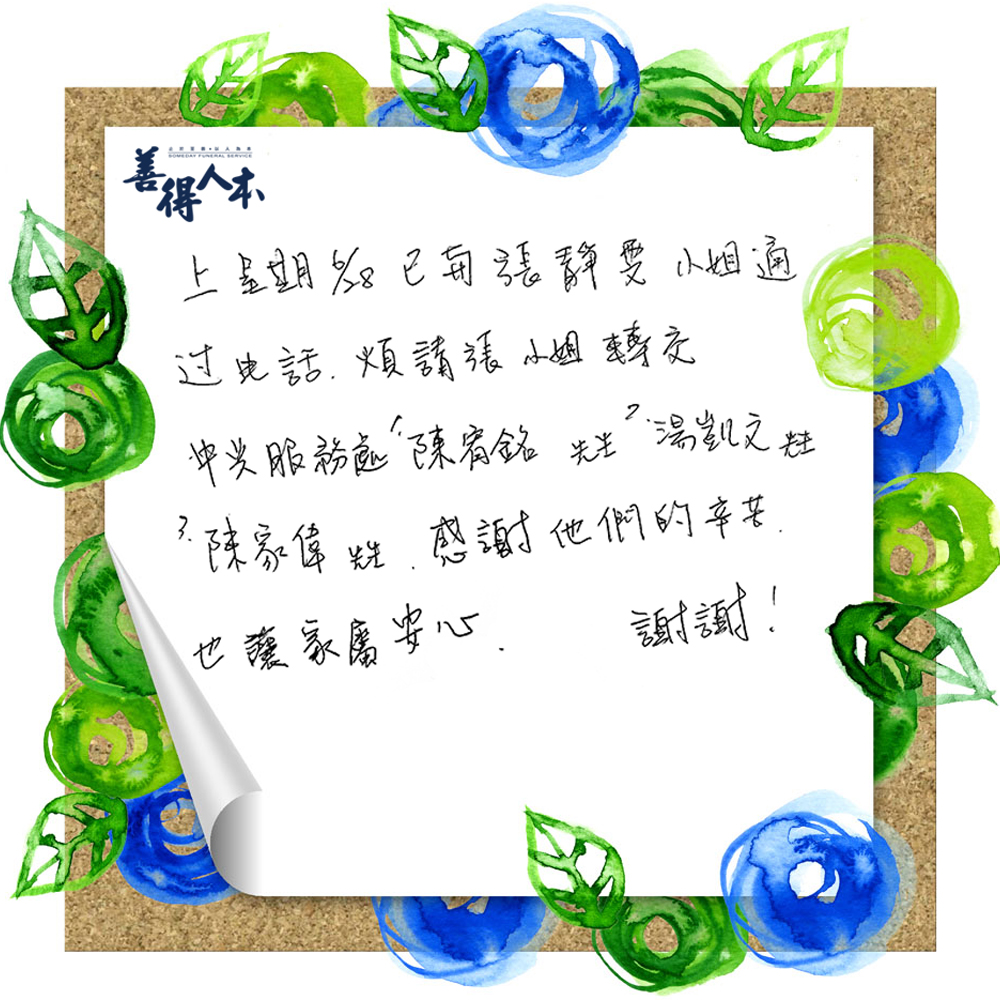 SOMEDAY FUNERAL SERVICE
善得人本
上星期 6/28 已有張靜雯小姐通
过电話. 煩請張小姐轉交
中央服務處 1.陳宥銘 先生 2.湯凱文 先生
3.陳家偉 先生. 感謝他們的辛苦.
也讓家屬安心. 謝謝!